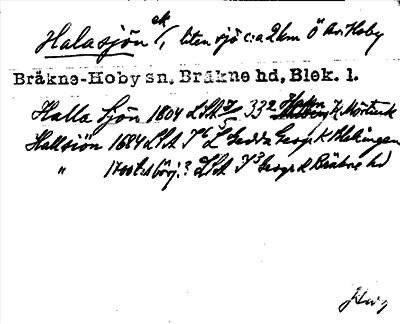 Halasjön ek/, liten sjö c:a 2km Ö Br. Hoby
Bräkne-Hoby sn, Bräkne hd, Blek. l.
Halla Sjön 1804 LSA 332 K Mörtjuck
Hallsiön 1684 LSA Gedda Geogr K Blekingen
" 1700ts börj.? LSA Y3 Geogr K Bräkne hd